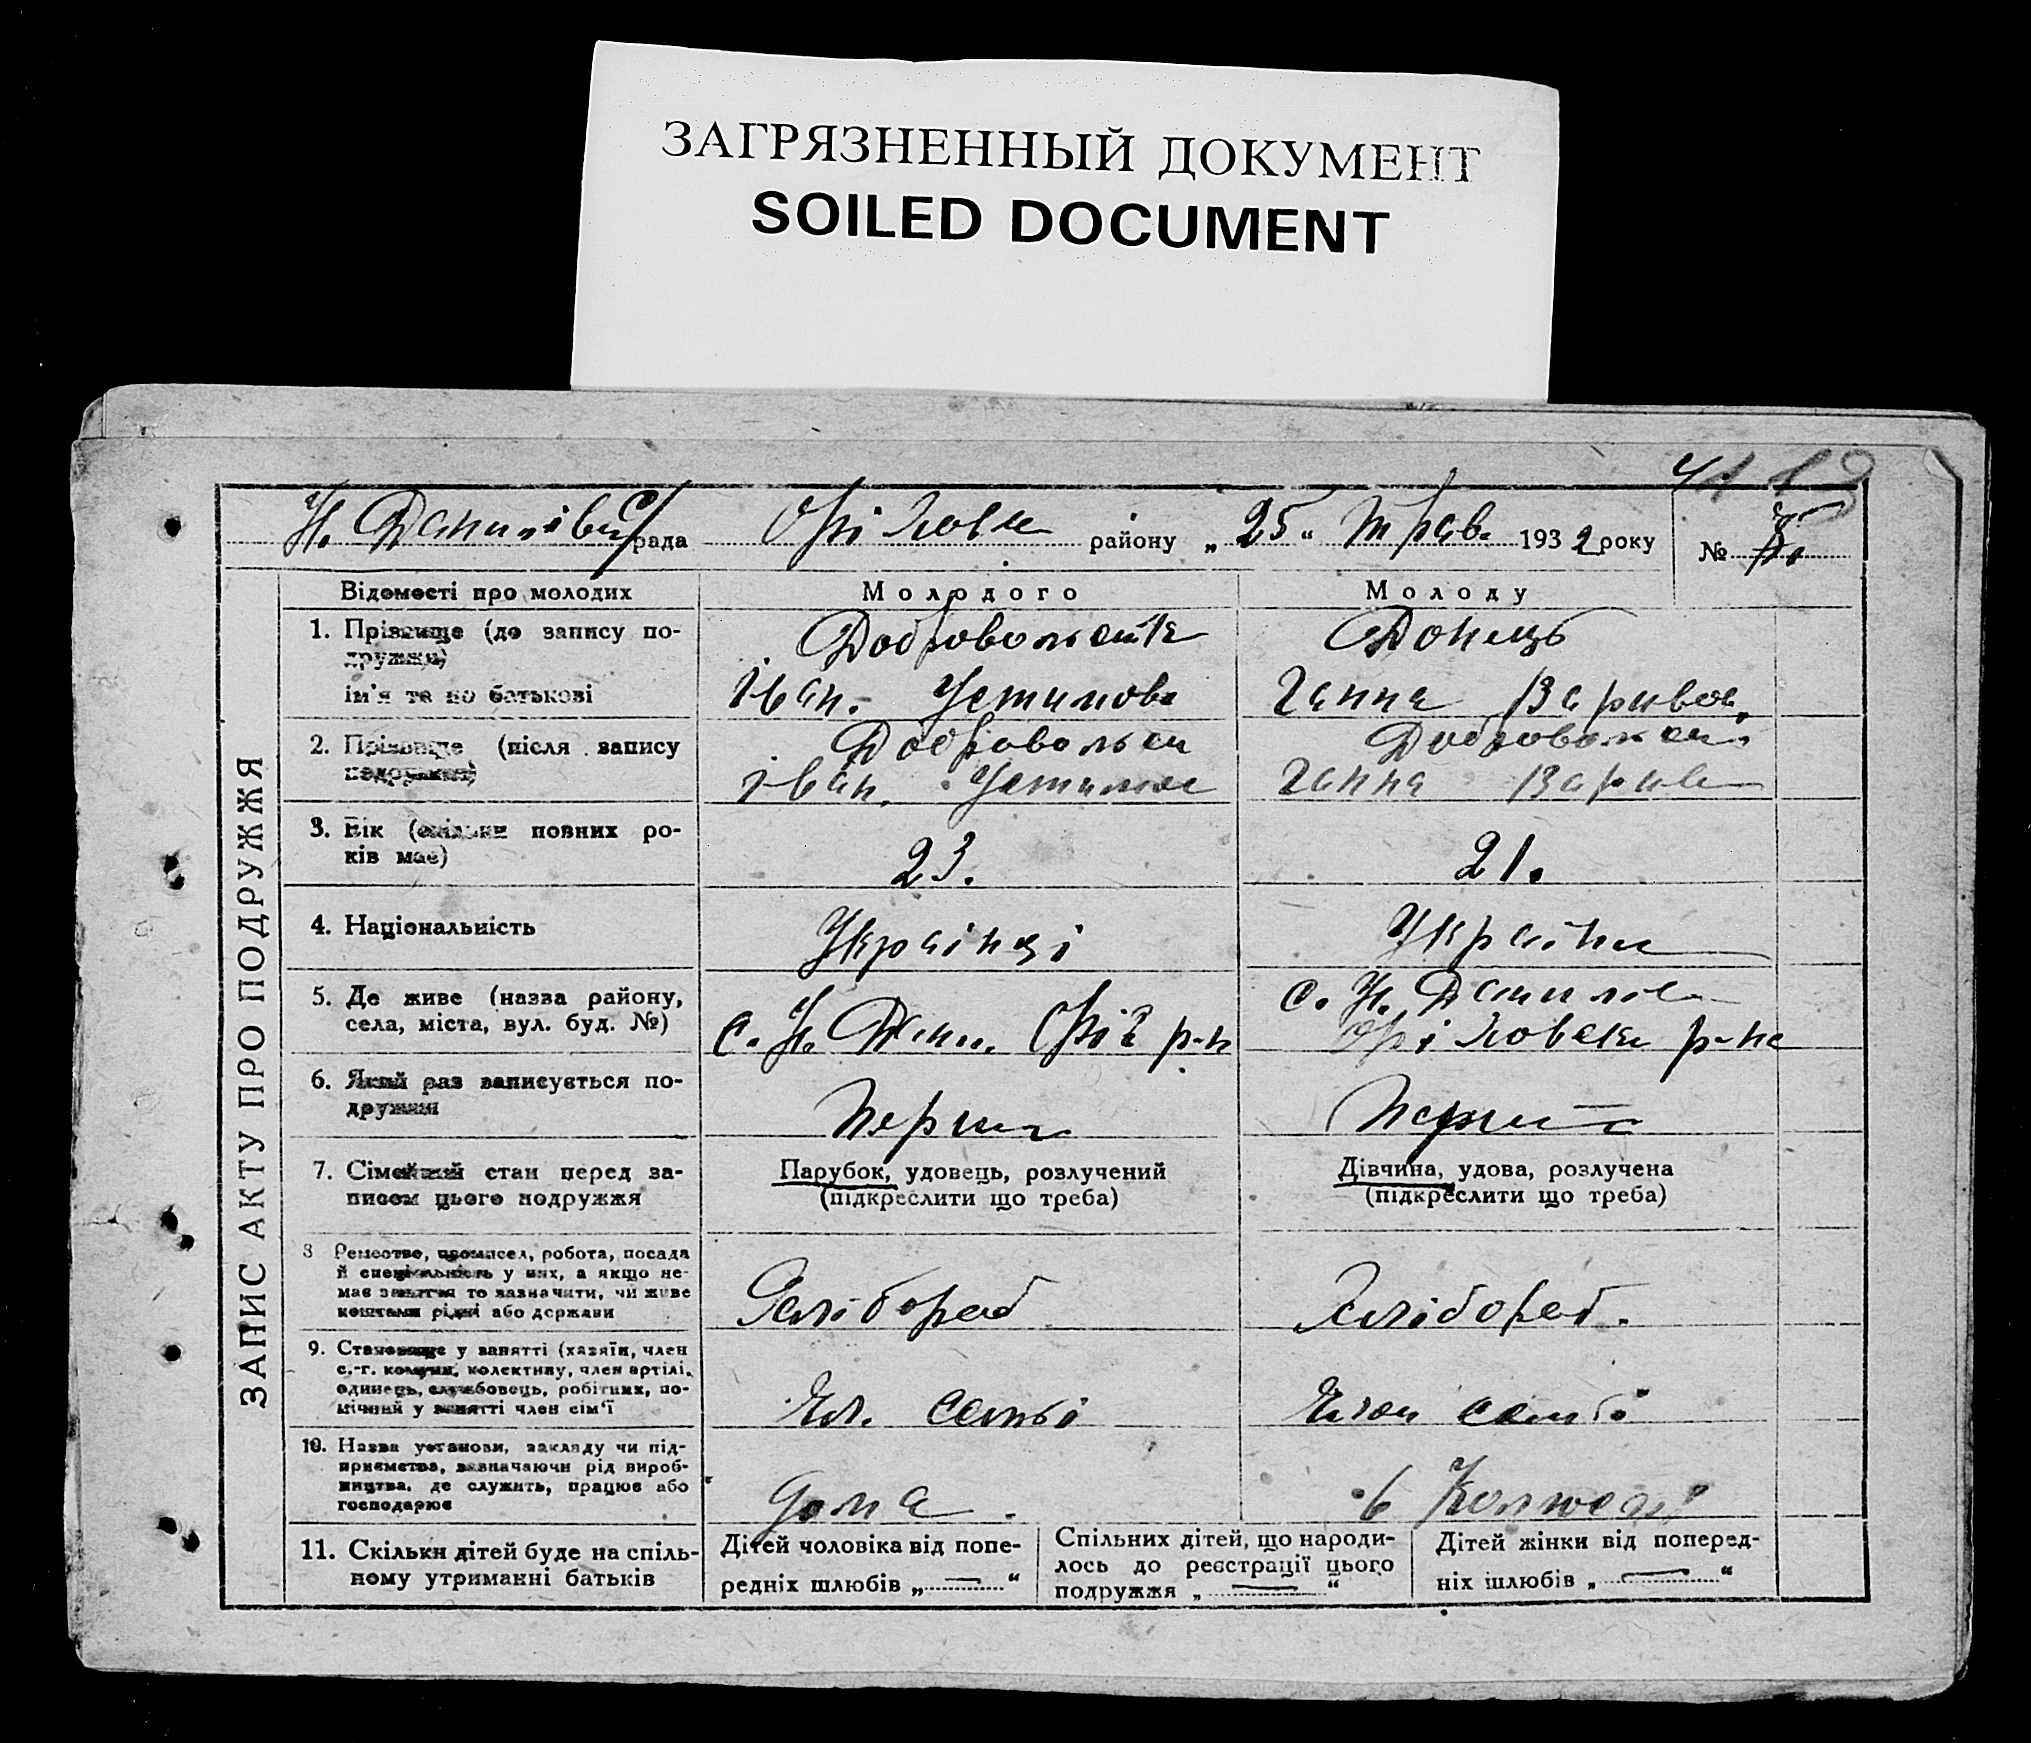 ЗАГРЯЗНЕННЫЙ ДОКУМЕНТ
SOILED DOCUMENT
Н. Данилівс рада Оріловсь району „25“ Трав. 1932 року №
ЗАПИС АКТУ ПРО ПОДРУЖЖЯ
Відомості про молодих
Молодого
Молоду
1. Прізвище (до запису по-
дружжя)
ім'я та по батькові
Донець
Іван. Устимов
Ганна
2. Прізвище (після запису
подружжя)
Добровольс
Іван. Устимов
Ганна
3. Вік (скільки повних ро-
ків має)
23.
21.
4. Національність
Українці
Україн
5. Де живе (назва району,
села, міста, вул. буд. №)
с. Н. Дани. Оріл р-н
с. Н. Данилів
Оріловськ р-на
6. Який раз записується по-
дружжя
Перший
Перший
7. Сімейний стан перед за-
писом цього подружжя
Парубок, удовець, розлучений
(підкреслити що треба)
Дівчина, удова, розлучена
(підкреслити що треба)
8 Ремество, промисел, робота, посада
й спеціяльність у них, а якщо не-
має заняття то зазначити, чи живе
коштами рідні або держави
Хлібороб
Хлібороб.
9. Становище у занятті (хазяїн, член
с.-г. комуни, колективу, член артілі,
одинець, службовець, робітник, по-
мічний у занятті член сім'ї
Чл. семьі
Член семьі
10. Назва установи, закладу чи під-
приємства, зазначаючи рід вироб-
ництва, де служить, працює або
господарює
дома.
в
11. Скільки дітей буде на спіль-
ному утриманні батьків
Дітей чоловіка від попе-
редніх шлюбів „—“
Спільних дітей, що народи-
лось до реєстрації цього
подружжя „—“
Дітей жінки від поперед-
ніх шлюбів „—“